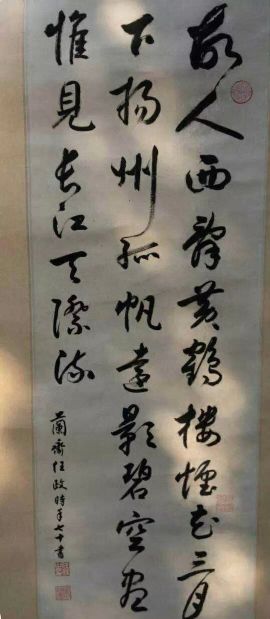 故人西辭黃鶴樓煙花三月
下揚州孤帆遠影碧空盡
惟見長江天際流
蘭齋任政時年七十書